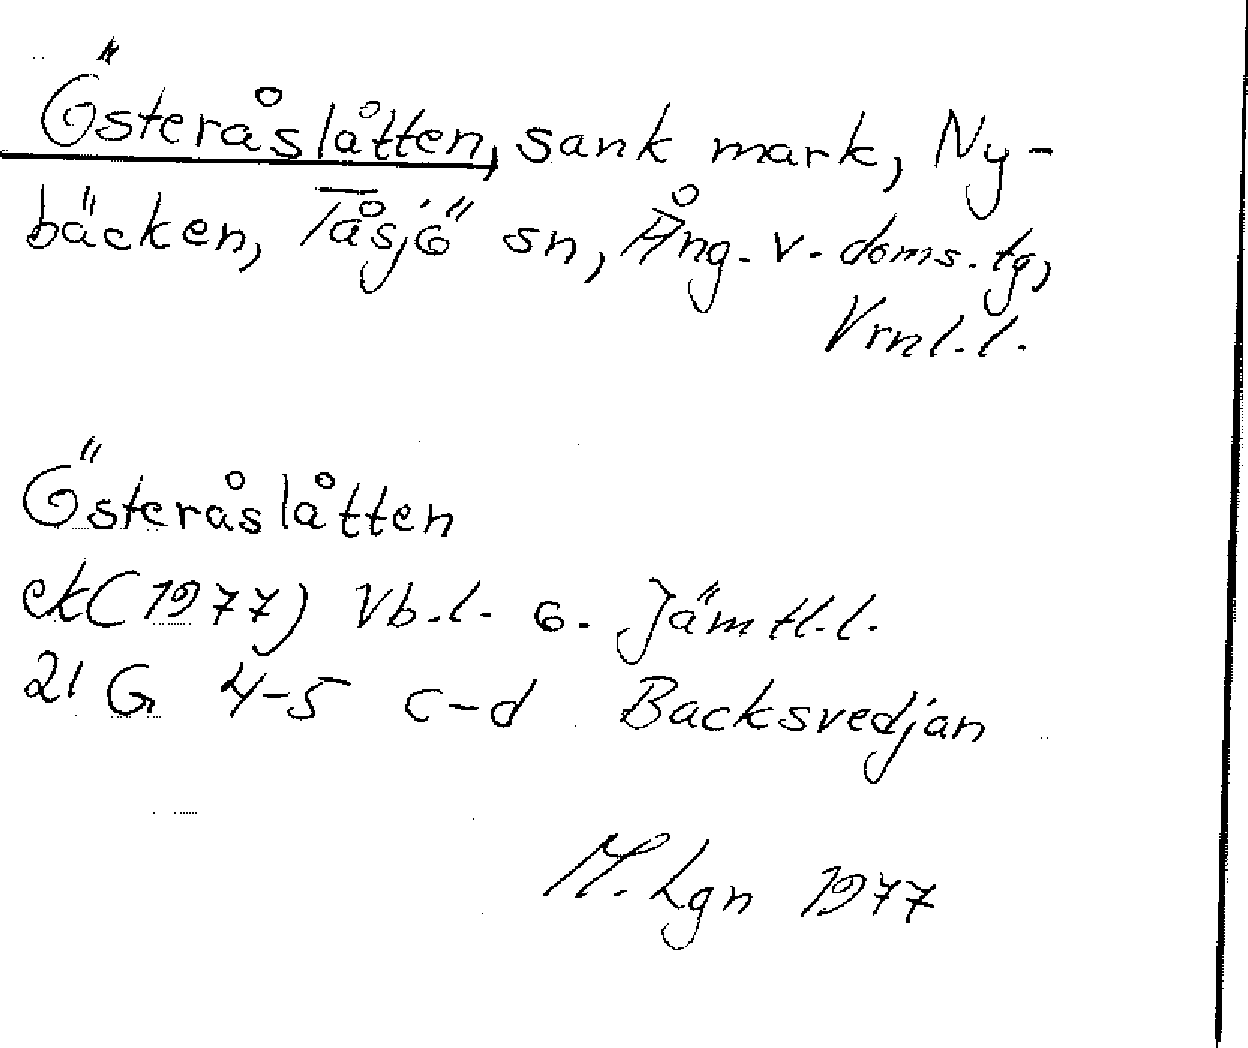 Österåslåtten, sank mark, Ny-
bäcken, Tåsjö sn, Ång. v. doms. tg,
Vrnl.l.
Österåslåtten
ek (1977) Vb.l. o. Jämtl.l.
21 G 4-5 c-d Backsvedjan
M. Lgn 1977